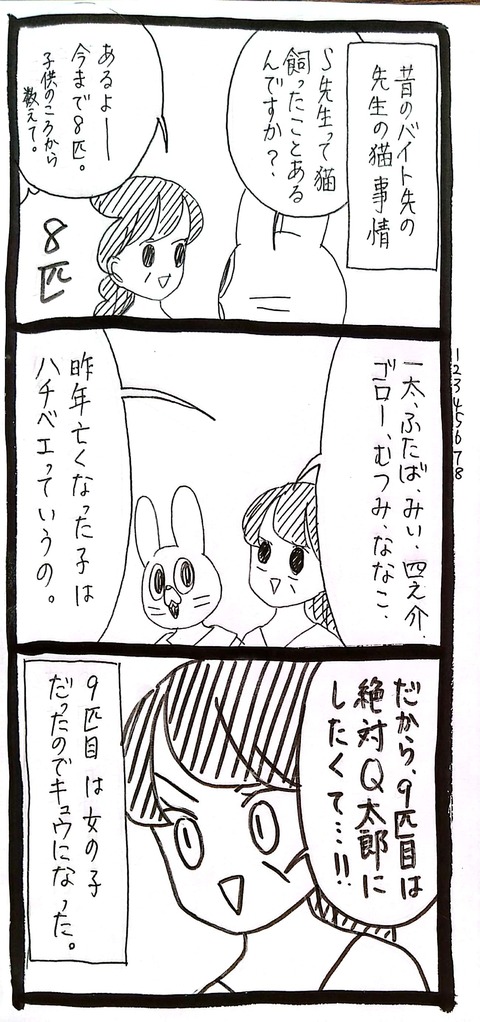 昔のバイト先の
先生の猫事情
S先生って猫
飼ったことある
んですか？
あるよー
今まで8匹。
子供のころから
数えて。
8匹
一太、ふたば、みい、四之介、
ゴロー、むつみ、ななこ、
12345678
昨年亡くなった子は
ハチベエっていうの。
だから、9匹目は
絶対Q太郎に
したくて…!!
9匹目は女の子
だったのでキュウになった。